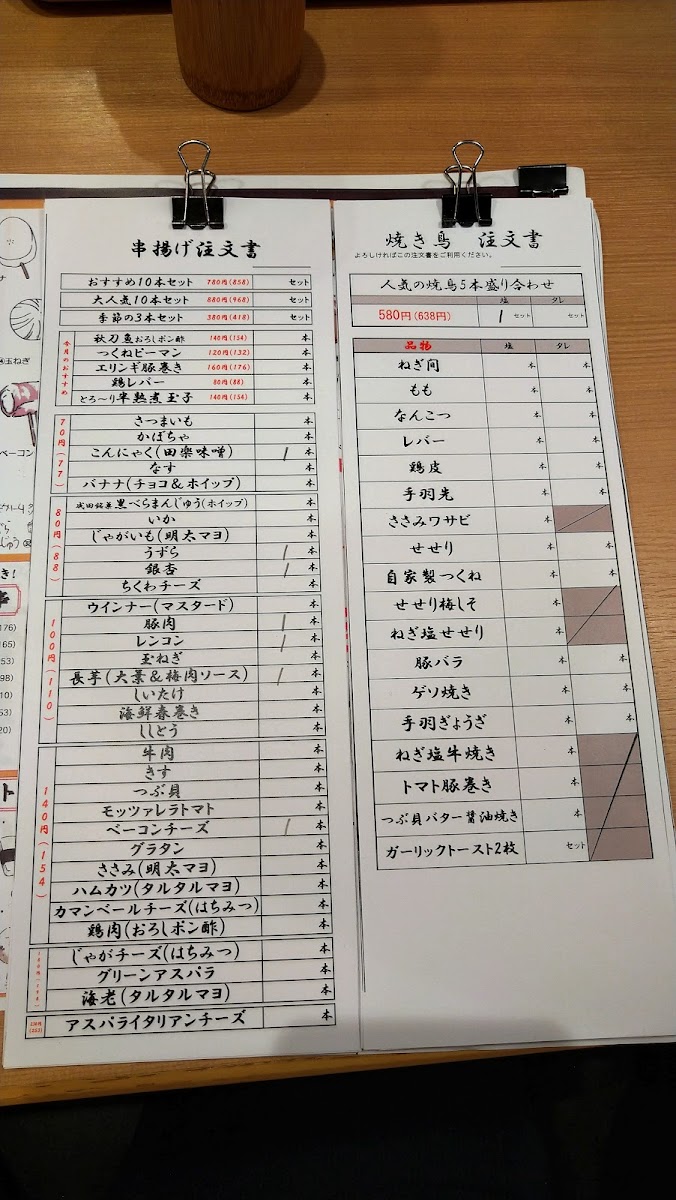 串揚げ注文書
おすすめ10本セット 780円(858) セット
大人気10本セット 880円(968) セット
季節の3本セット 380円(418) セット
今月のおすすめ
秋刀魚おろしポン酢 140円(154) 本
つくねピーマン 120円(132) 本
エリンギ豚巻き 160円(176) 本
鶏レバー 80円(88) 本
とろ〜り半熟煮玉子 140円(154) 本
70円(77)
さつまいも 本
かぼちゃ 本
こんにゃく(田楽味噌) / 本
なす 本
バナナ(チョコ&ホイップ) 本
80円(88)
成田銘菓黒べらまんじゅう(ホイップ) 本
いか 本
じゃがいも(明太マヨ) 本
うずら / 本
銀杏 / 本
ちくわチーズ 本
100円(110)
ウインナー(マスタード) 本
豚肉 / 本
レンコン / 本
玉ねぎ 本
長芋(大葉&梅肉ソース) / 本
しいたけ 本
海鮮春巻き 本
ししとう 本
140円(154)
牛肉 本
きす 本
つぶ貝 本
モッツァレラトマト 本
ベーコンチーズ / 本
グラタン 本
ささみ(明太マヨ) 本
ハムカツ(タルタルマヨ) 本
カマンベールチーズ(はちみつ) 本
鶏肉(おろしポン酢) 本
じゃがチーズ(はちみつ) 本
グリーンアスパラ 本
海老(タルタルマヨ) 本
アスパライタリアンチーズ 本
焼き鳥 注文書
よろしければこの注文書をご利用ください。
人気の焼鳥5本盛り合わせ
塩 タレ
580円(638円) 1 セット セット
品物 塩 タレ
ねぎ間 本 本
もも 本 本
なんこつ 本 本
レバー 本 本
鶏皮 本 本
手羽先 本 本
ささみワサビ 本
せせり 本 本
自家製つくね 本 本
せせり梅しそ 本
ねぎ塩せせり 本
豚バラ 本 本
ゲソ焼き 本 本
手羽ぎょうざ 本 本
ねぎ塩牛焼き 本
トマト豚巻き 本
つぶ貝バター醤油焼き 本
ガーリックトースト2枚 セット
玉ねぎ
ベーコン
176)
165)
53)
98)
10)
53)
20)